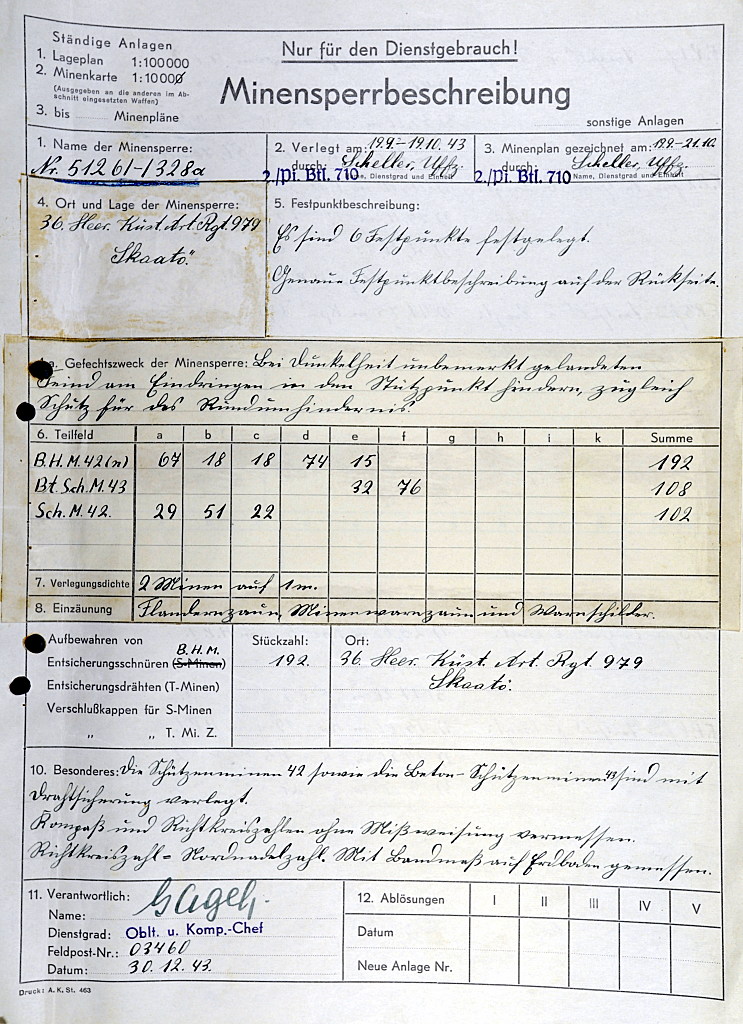 Ständige Anlagen
1. Lageplan 1:100000
2. Minenkarte 1:10000
(Ausgegeben an die anderen im Ab-
schnitt eingesetzten Waffen)
3. bis Minenpläne
Nur für den Dienstgebrauch!
Minensperrbeschreibung
sonstige Anlagen
1. Name der Minensperre:
Nr. 51261-1328a
2. Verlegt am: 19.9.-19.10.43
durch: Scheller, Uffz.
2./Pi. Btl. 710 Dienstgrad und Einheit
3. Minenplan gezeichnet am: 19.9.-21.10.
durch: Scheller, Uffz.
2./Pi. Btl. 710 Name, Dienstgrad und Einheit
4. Ort und Lage der Minensperre:
36. Heer. Küst. Art. Rgt. 979
"Skaatö"
5. Festpunktbeschreibung:
Es sind 6 Festpunkte festgelegt.
Genaue Festpunktbeschreibung auf der Rückseite.
Gefechtszweck der Minensperre: Bei Dunkelheit unbemerkt gelandeten
Feind am Eindringen in den Stützpunkt hindern, zugleich
Schutz für das Rundumhindernis.
6. Teilfeld a b c d e f g h i k Summe
B.H.M. 42(n) 67 18 18 74 15 192
Bt. Sch. M. 43 32 76 108
Sch. M. 42. 29 51 22 102
7. Verlegungsdichte 2 Minen auf 1m.
8. Einzäunung Flandernzaun, Minenwarnzaun und Warnschilder.
Aufbewahren von
B.H.M.
Entsicherungsschnüren (S-Minen)
Entsicherungsdrähten (T-Minen)
Verschlußkappen für S-Minen
„ „ T. Mi. Z.
Stückzahl:
192.
Ort:
36. Heer. Küst. Art. Rgt. 979
Skaatö.
10. Besonderes: Die Schützenminen 42 sowie die Beton-Schützenminen 43 sind mit
Drahtsicherung verlegt.
Kompaß und Richtkreiszahlen ohne Mißweisung vermessen.
Richtkreiszahl = Nordnadelzahl. Mit Bandmaß auf Erdboden gemessen.
11. Verantwortlich:
Name:
Dienstgrad: Oblt. u. Komp.-Chef
Feldpost-Nr.: 03460
Datum: 30.12.43.
12. Ablösungen I II III IV V
Datum
Neue Anlage Nr.
Druck: A. K. St. 463